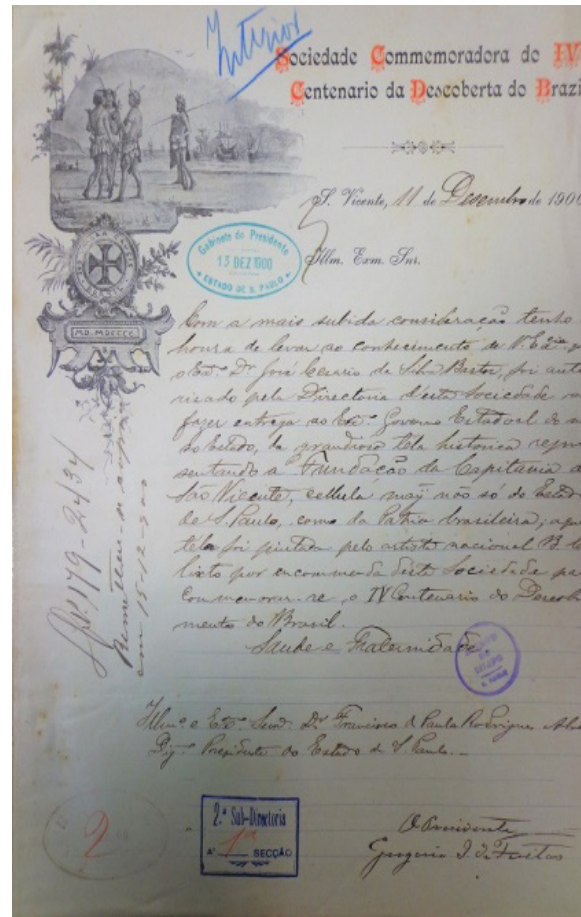 Interior
Sociedade Commemoradora do IV
Centenario da Descoberta do Brazi
S. Vicente, 11 de Desembro de 1900
Gabinete do Presidente
13 DEZ 1900
ESTADO DE S. PAULO
Illm. Exm. Snr.
Com a mais subida consideração tenho
honra de levar ao conhecimento de V. Excia
o Exo. Dr. José Cesario da Silva Bastos, foi auto
risado pela Directoria d'esta Sociedade
fazer entrega ao Exo. Governo Estadoal do
so Estado, da grandiosa tela historica repre
sentando a Fundação da Capitania
São Vicente, cellula may não só do Estado
de S. Paulo, como da Patria brasileira;
tela foi pintada pelo artista nacional B.
lixto por encommenda desta Sociedade pa
commemorar-se o IV Centenario do Descobri
mento do Brasil.
Saude e Fraternidade
MD. MDCCCC
179-2434
em 15-12-900
Illmo. e Exo. Snr. Dr. Francisco de Paula Rodrigues Alv
Dig. Presidente do Estado de S. Paulo.
2
2.ª Sub-Directoria
A 1ª SECÇÃO
O Presidente
J. de Freitas